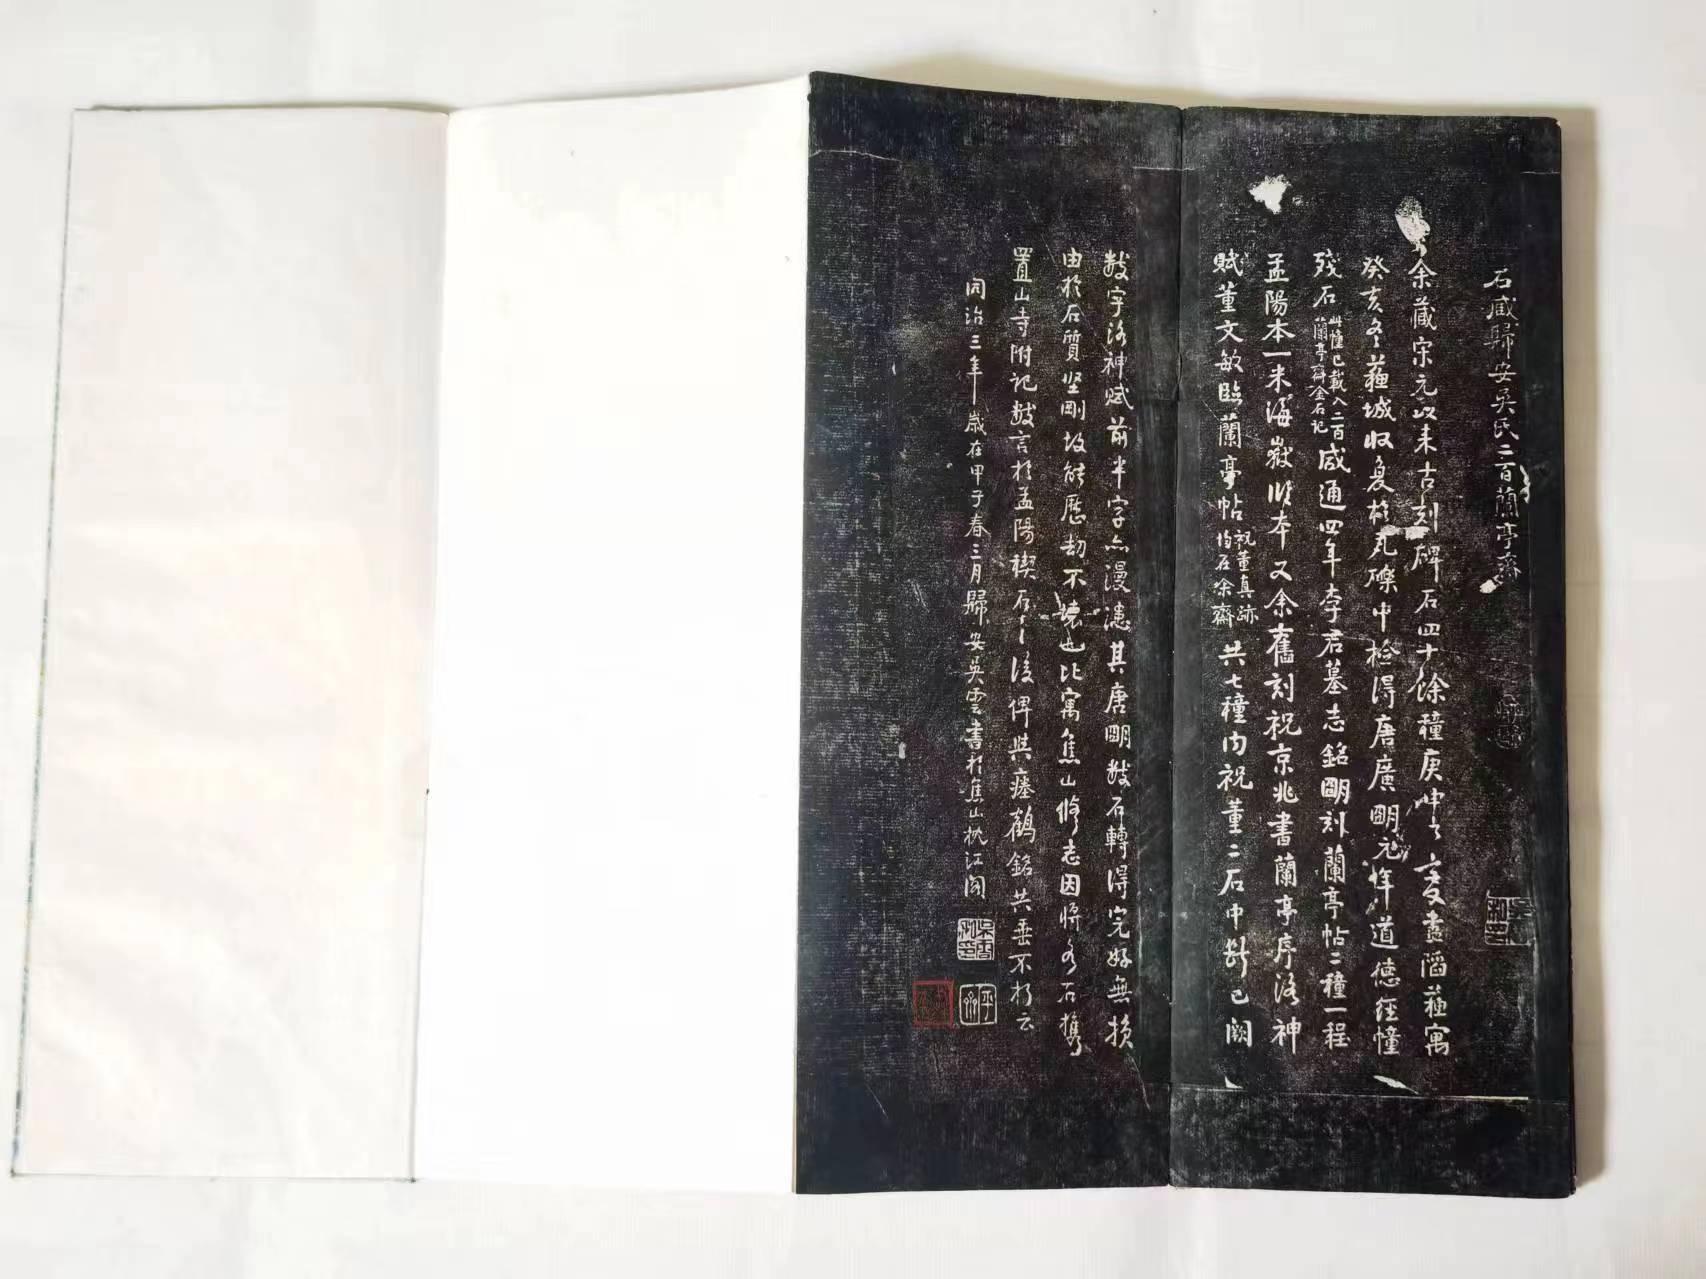 石藏歸安吳氏二百蘭亭齋
余藏宋元以来古刻碑石四十餘種庚申之變盡淪蘓寓
癸亥冬蘓城收复於瓦礫中检得唐廣明元年道德經幢
残石此幢已載入二百蘭亭齋金石記咸通四年李君墓志銘明刻蘭亭帖二種一程
孟陽本一米海嶽臨本又余舊刻祝京兆書蘭亭序洛神
賦董文敏臨蘭亭帖祝董真跡均在余齋共七種内祝董二石中斷已闕
数字洛神賦前半字亦漫漶其唐明数石轉得完好無损
由於石質坚剛故能歷劫不壞也比寓焦山修志因將各石携
置山寺附记数言於孟陽禊石之後俾與瘗鶴銘共垂不朽云
同治三年歲在甲子春三月歸安吳雲書於焦山枕江阁
平齋